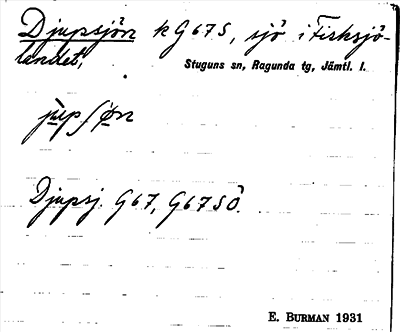 Djupsjön k G67S, sjö i Fisksjö-
landet,
Stuguns sn, Ragunda tg, Jämtl. l.
jùpʃön
Djupsj. G67, G67SÖ.
E. BURMAN 1931